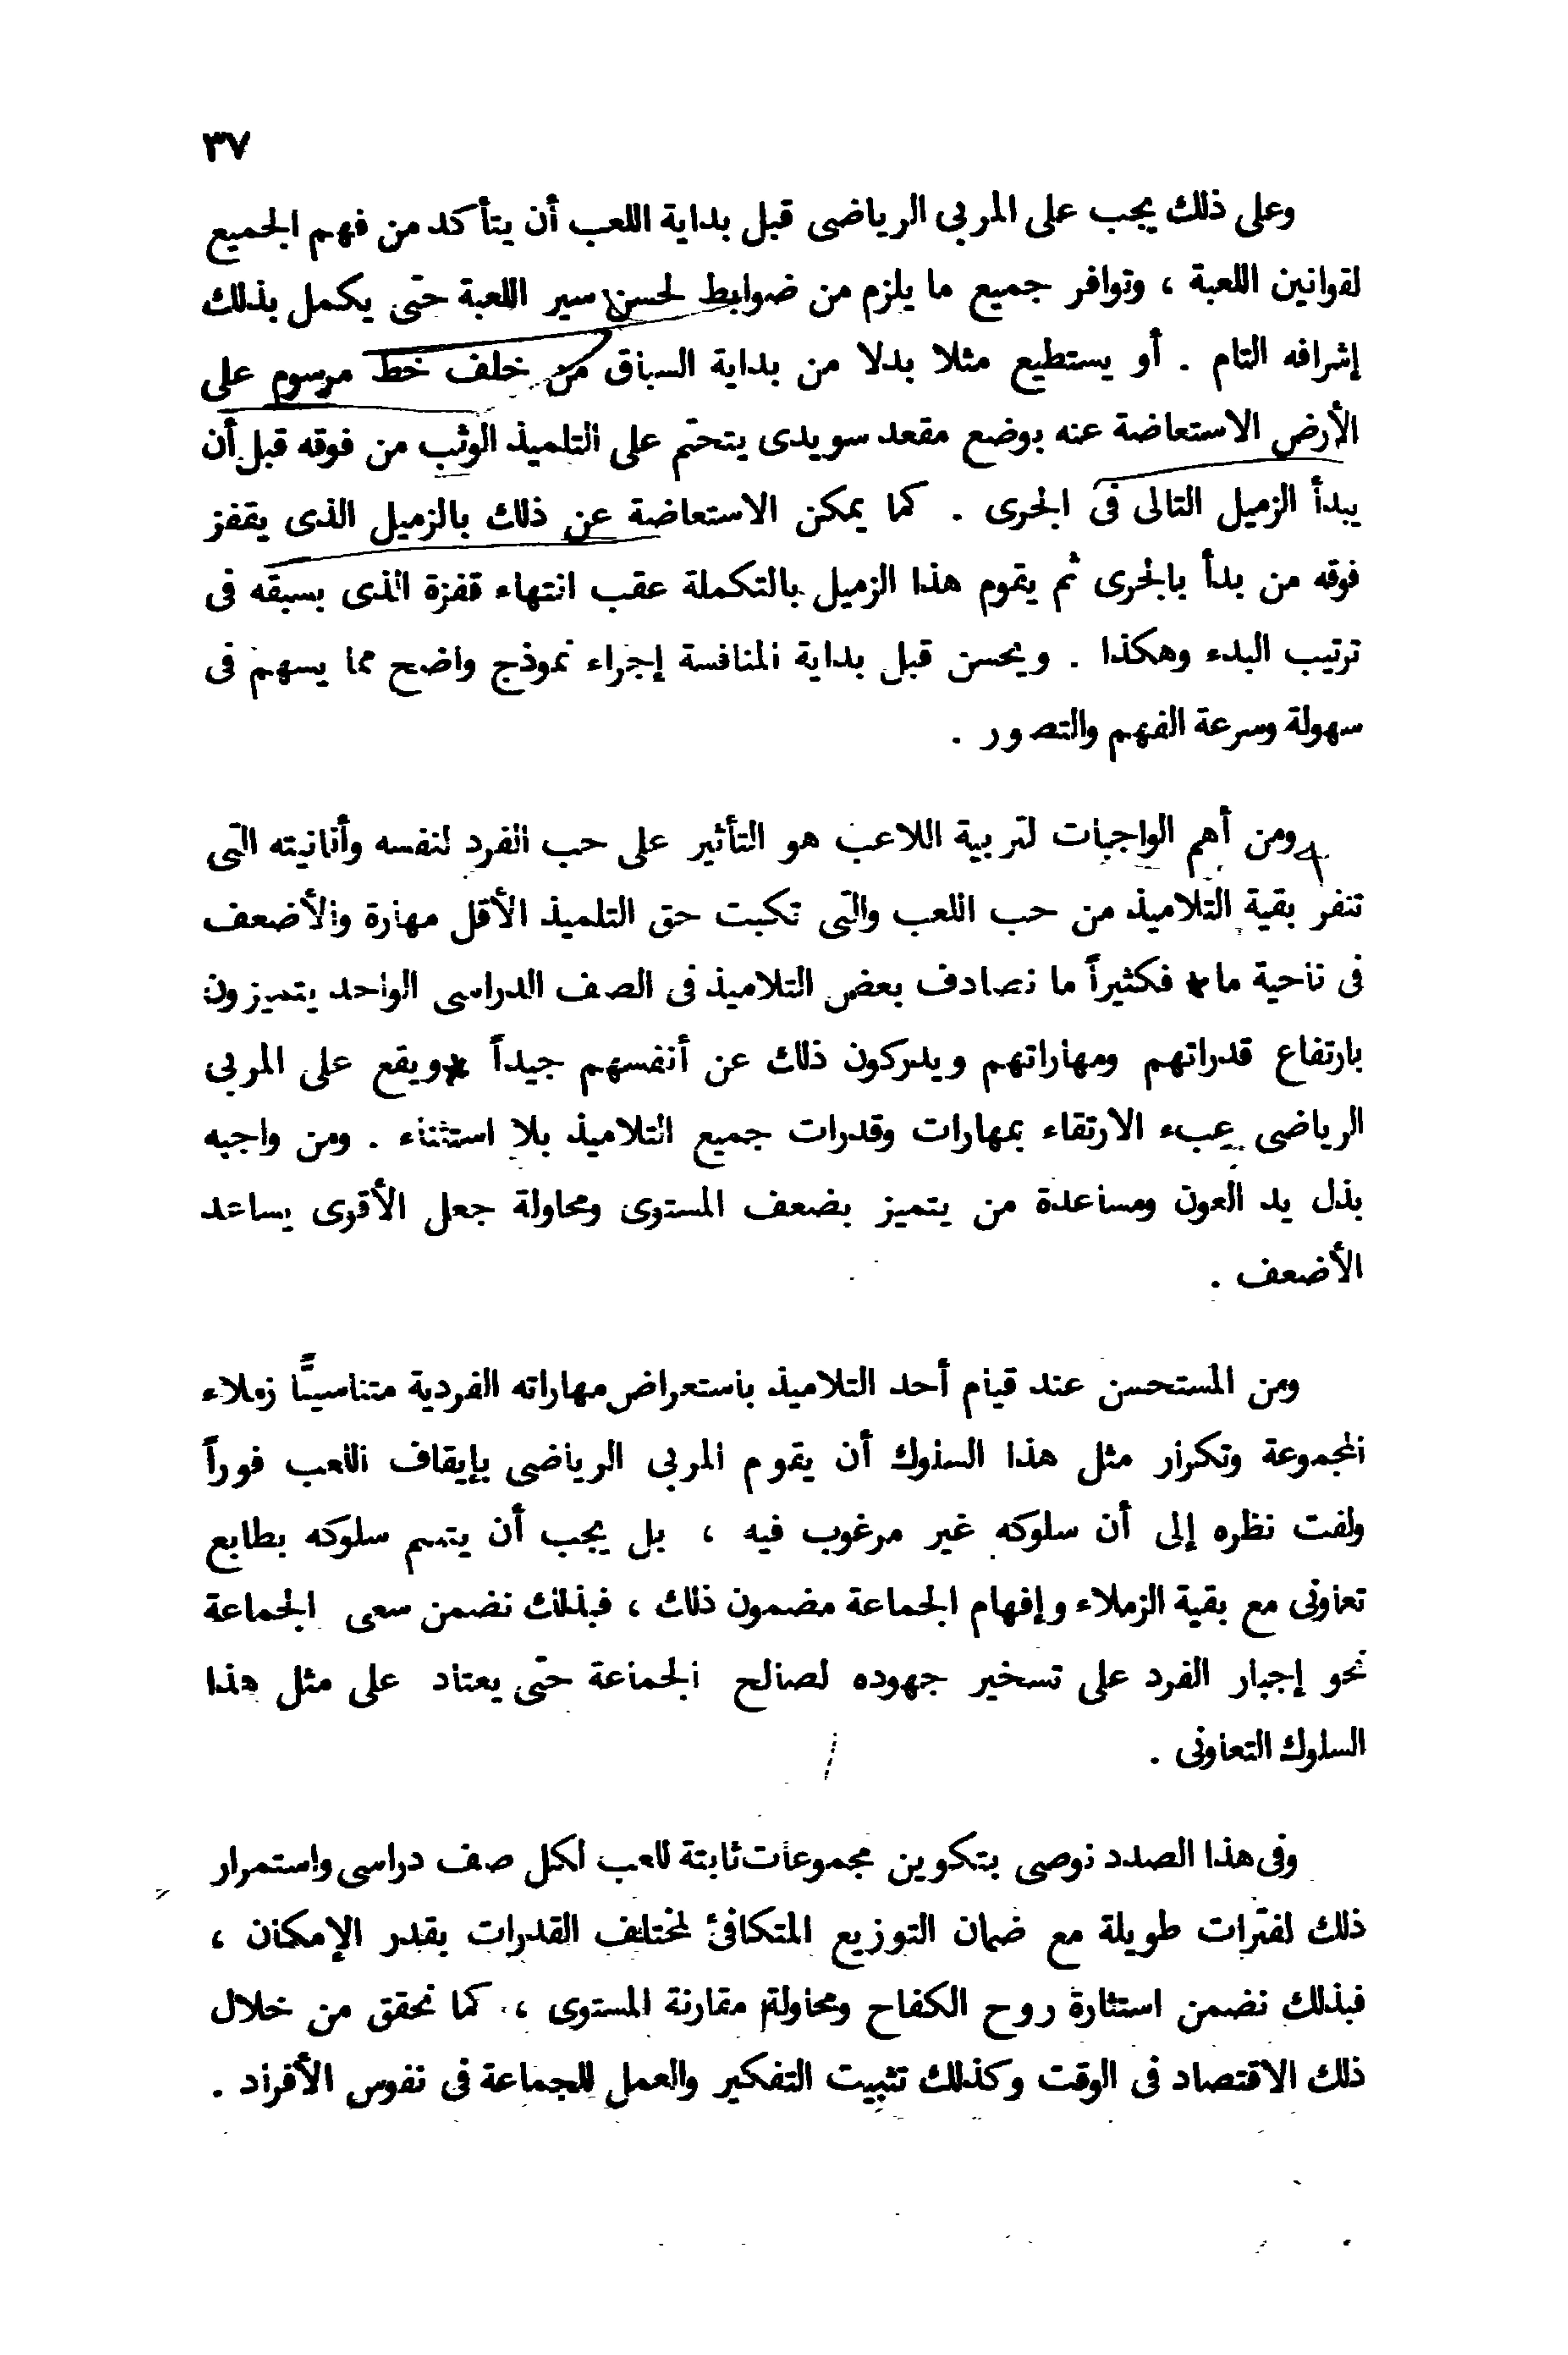 ٣٧
وعلى ذلك يجب على المربى الرياضى قبل بداية اللعب أن يتأكد من فهم الجميع
لقوانين اللعبة ، وتوافر جميع ما يلزم من ضوابط لحسن سير اللعبة حتى يكمل بذلك
إشرافه التام . أو يستطيع مثلا بدلا من بداية السباق من خلف خط مرسوم على
الأرض الاستعاضة عنه بوضع مقعد سويدى يتحتم على التلميذ الوثب من فوقه قبل أن
يبدأ الزميل التالى فى الجرى . كما يمكن الاستعاضة عن ذلك بالزميل الذى يقفز
فوقه من بدأ بالجرى ثم يقوم هذا الزميل بالتكملة عقب انتهاء قفزة الذى بسبقه فى
ترتيب البدء وهكذا . ويحسن قبل بداية المنافسة إجراء نموذج واضح مما يسهم فى
سهولة وسرعة الفهم والتصور .
ومن أهم الواجبات لتربية اللاعب هو التأثير على حب الفرد لنفسه وأنانيته التى
تنفر بقية التلاميذ من حب اللعب والتى تكبت حق التلميذ الأقل مهارة والأضعف
فى ناحية ما * فكثيراً ما نصادف بعض التلاميذ فى الصف الدراسى الواحد يتميزون
بارتفاع قدراتهم ومهاراتهم ويدركون ذلك عن أنفسهم جيداً * ويقع على المربى
الرياضى عبء الارتقاء بمهارات وقدرات جميع التلاميذ بلا استثناء . ومن واجبه
بذل يد العون ومساعدة من يتميز بضعف المستوى ومحاولة جعل الأقوى يساعد
الأضعف .
ومن المستحسن عند قيام أحد التلاميذ باستعراض مهاراته الفردية متناسيًّا زملاء
المجموعة وتكرار مثل هذا السلوك أن يقوم المربى الرياضى بإيقاف اللعب فوراً
ولفت نظره إلى أن سلوكه غير مرغوب فيه ، بل يجب أن يتسم سلوكه بطابع
تعاونى مع بقية الزملاء وإفهام الجماعة مضمون ذلك ، فبذلك نضمن سعى الجماعة
نحو إجبار الفرد على تسخير جهوده لصالح الجماعة حتى يعتاد على مثل هذا
السلوك التعاونى .
وفى هذا الصدد نوصى بتكوين مجموعات ثابتة للعب لكل صف دراسى واستمرار
ذلك لفترات طويلة مع ضمان التوزيع المتكافئ لمختلف القدرات بقدر الإمكان ،
فبذلك نضمن استثارة روح الكفاح ومحاولة مقارنة المستوى ، كما نحقق من خلال
ذلك الاقتصاد فى الوقت وكذلك تثبيت التفكير والعمل للجماعة فى نفوس الأفراد .